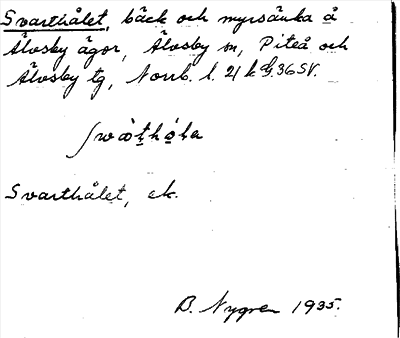 Svarthålet, bäck och myrsänka å
Älvsby ägor, Älvsby sn, Piteå och
Älvsby tg, Norrb. l. 21 k d. 36 SV.
Svarthålet, ek.
B. Nygren 1935.